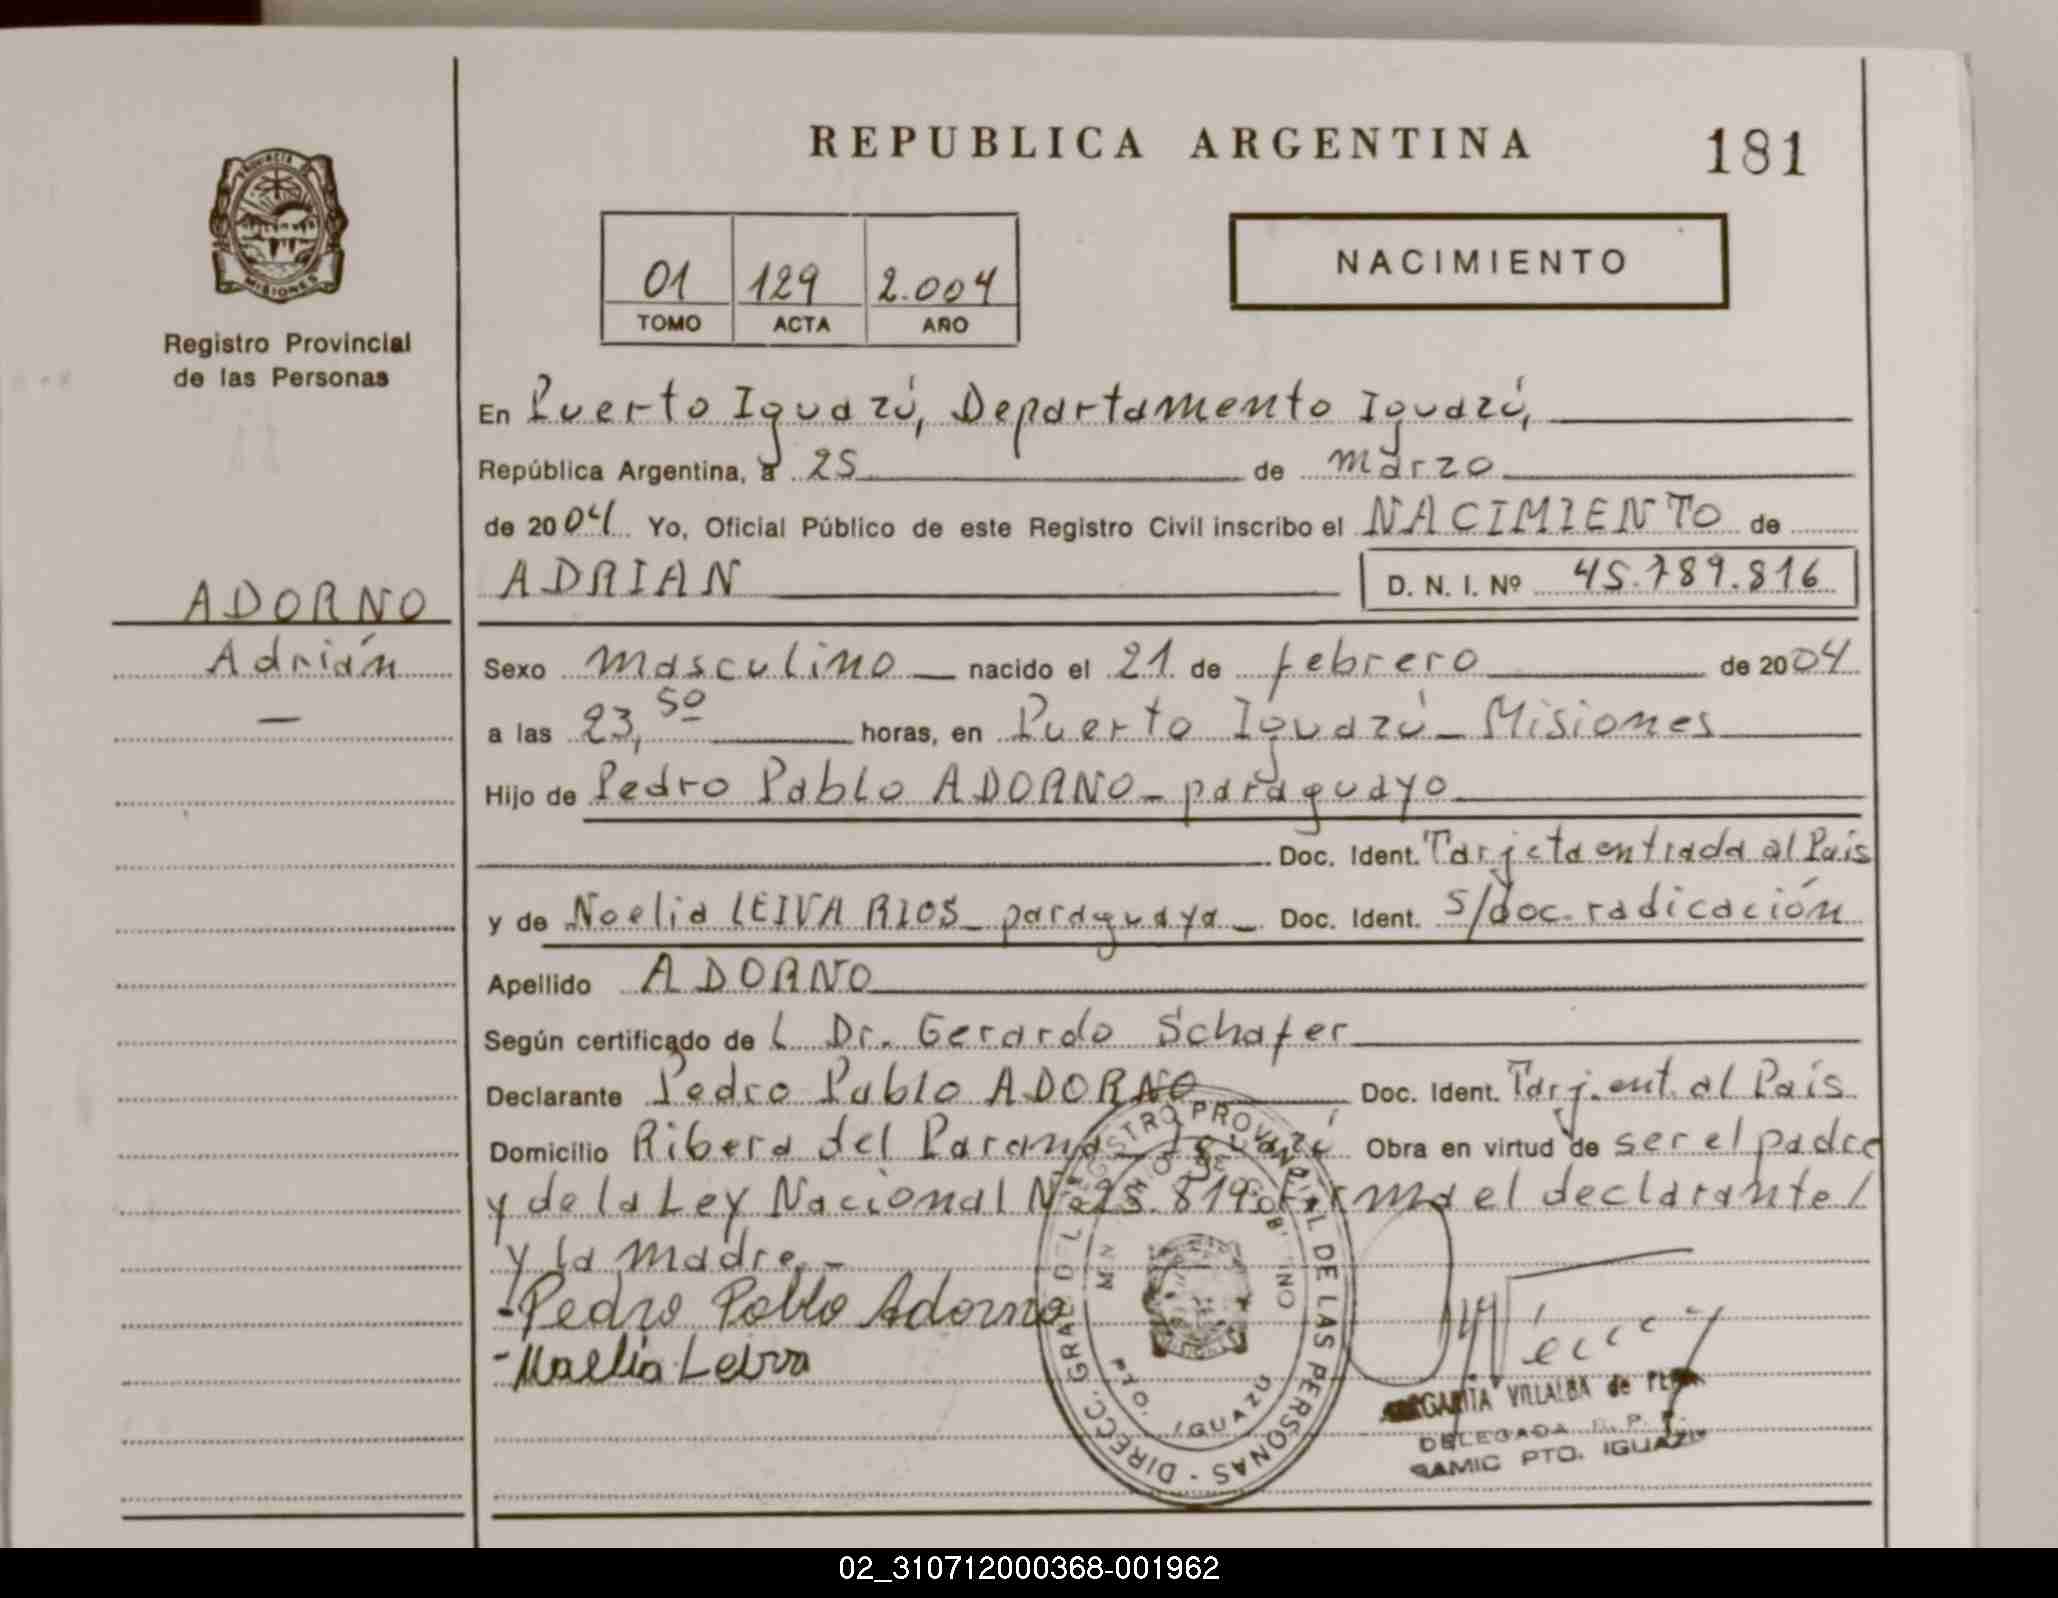 REPUBLICA ARGENTINA
181
PROVINCIA DE
MISIONES
Registro Provincial
de las Personas
01 129 2.004
TOMO ACTA AÑO
NACIMIENTO
En Puerto Iguazú, Departamento Iguazú,
República Argentina, a 25 de marzo
de 2004 Yo, Oficial Público de este Registro Civil inscribo el NACIMIENTO de
ADRIAN D. N. I. Nº 45.789.816
ADORNO
Adrián
Sexo masculino nacido el 21 de febrero de 2004
a las 23,50 horas, en Puerto Iguazú - Misiones
Hijo de Pedro Pablo ADORNO - paraguayo
Doc. Ident. Tarjeta entrada al País
y de Noelia LEIVA RIOS - paraguaya - Doc. Ident. s/doc. radicación
Apellido ADORNO
Según certificado de l Dr. Gerardo Schafer
Declarante Pedro Pablo ADORNO Doc. Ident. Tarj. ent. al País
Domicilio Ribera del Paraná - Iguazú Obra en virtud de ser el padre
y de la Ley Nacional Nº 25.819. Firma el declarante /
y la madre. -
- Pedro Pablo Adorno
- Noelia Leiva
DIRECC. GRAL. DEL REGISTRO PROVINCIAL DE LAS PERSONAS -
MIN. DE GOBIERNO
PTO. IGUAZU
MARGARITA VILLALBA de
DELEGADA R. P. P.
SAMIC PTO. IGUAZU
02_310712000368-001962